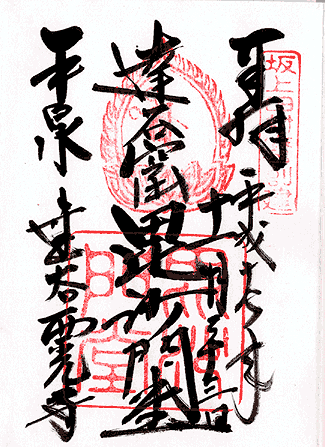 奉拝
平成
十一月二十三日
達谷窟毘沙門堂
平泉
達谷西光寺
坂上